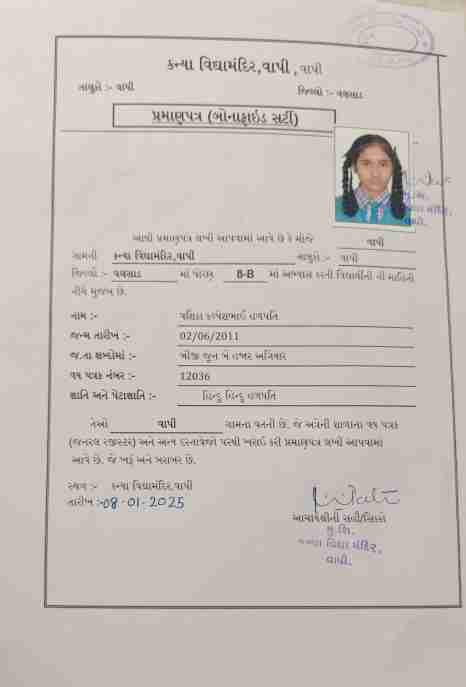 કન્યા વિદ્યામંદિર,વાપી , વાપી
તાલુકો :- વાપી જિલ્લો :- વલસાડ
પ્રમાણપત્ર (બોનાફાઇડ સર્ટી)
મુ.શિ.
કન્યા વિદ્યા મંદિર,
વાપી.
આથી પ્રમાણપત્ર લખી આપવામાં આવે છે કે મોજે વાપી
ગામની કન્યા વિદ્યામંદિર,વાપી તાલુકો:- વાપી
જિલ્લો :- વલસાડ માં ધોરણ 8-B માં અભ્યાસ કરતી વિદ્યાર્થીની ની માહિતી
નીચે મુજબ છે.
નામ :- કલ્પેશભાઈ હળપતિ
જન્મ તારીખ :- 02/06/2011
જ.તા શબ્દોમાં :- બીજી જૂન બે હજાર અગિયાર
વય પત્રક નંબર :- 12036
જ્ઞાતિ અને પેટાજ્ઞાતિ :- હિન્દુ હિન્દુ હળપતિ
તેઓ વાપી ગામના વતની છે. જે અત્રેની શાળાના વય પત્રક
(જનરલ રજીસ્ટર) અને અન્ય દસ્તાવેજો પરથી ખરાઈ કરી પ્રમાણપત્ર લખી આપવામાં
આવે છે. જે ખરું અને બરાબર છે.
સ્થળ :- કન્યા વિદ્યામંદિર,વાપી
તારીખ :-08-01-2025
આચાર્યશ્રીની સહી/સિક્કો
મુ.શિ.
કન્યા વિદ્યા મંદિર,
વાપી.